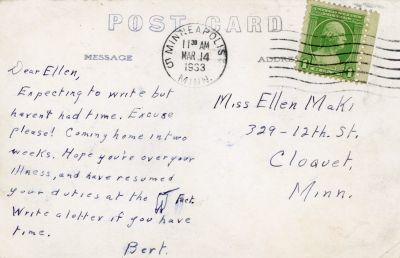 POST CARD
MINNEAPOLIS
11 30 AM
MAR 14
1933
MINN.
MESSAGE
ADDRE
Dear Ellen,
Expecting to write but
havent had time. Excuse
please! Coming home in two
weeks. Hope you're over your
illness, and have resumed
your duties at the fact.
Write a letter if you have
time.
Bert.
Miss Ellen Maki
329-12th. St.
Cloquet,
Minn.